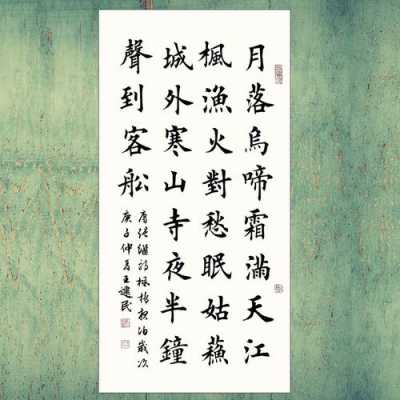 月落烏啼霜滿天江
楓漁火對愁眠姑蘇
城外寒山寺夜半鐘
聲到客船
唐張繼詩楓橋夜泊歲次
庚子仲夏王建民